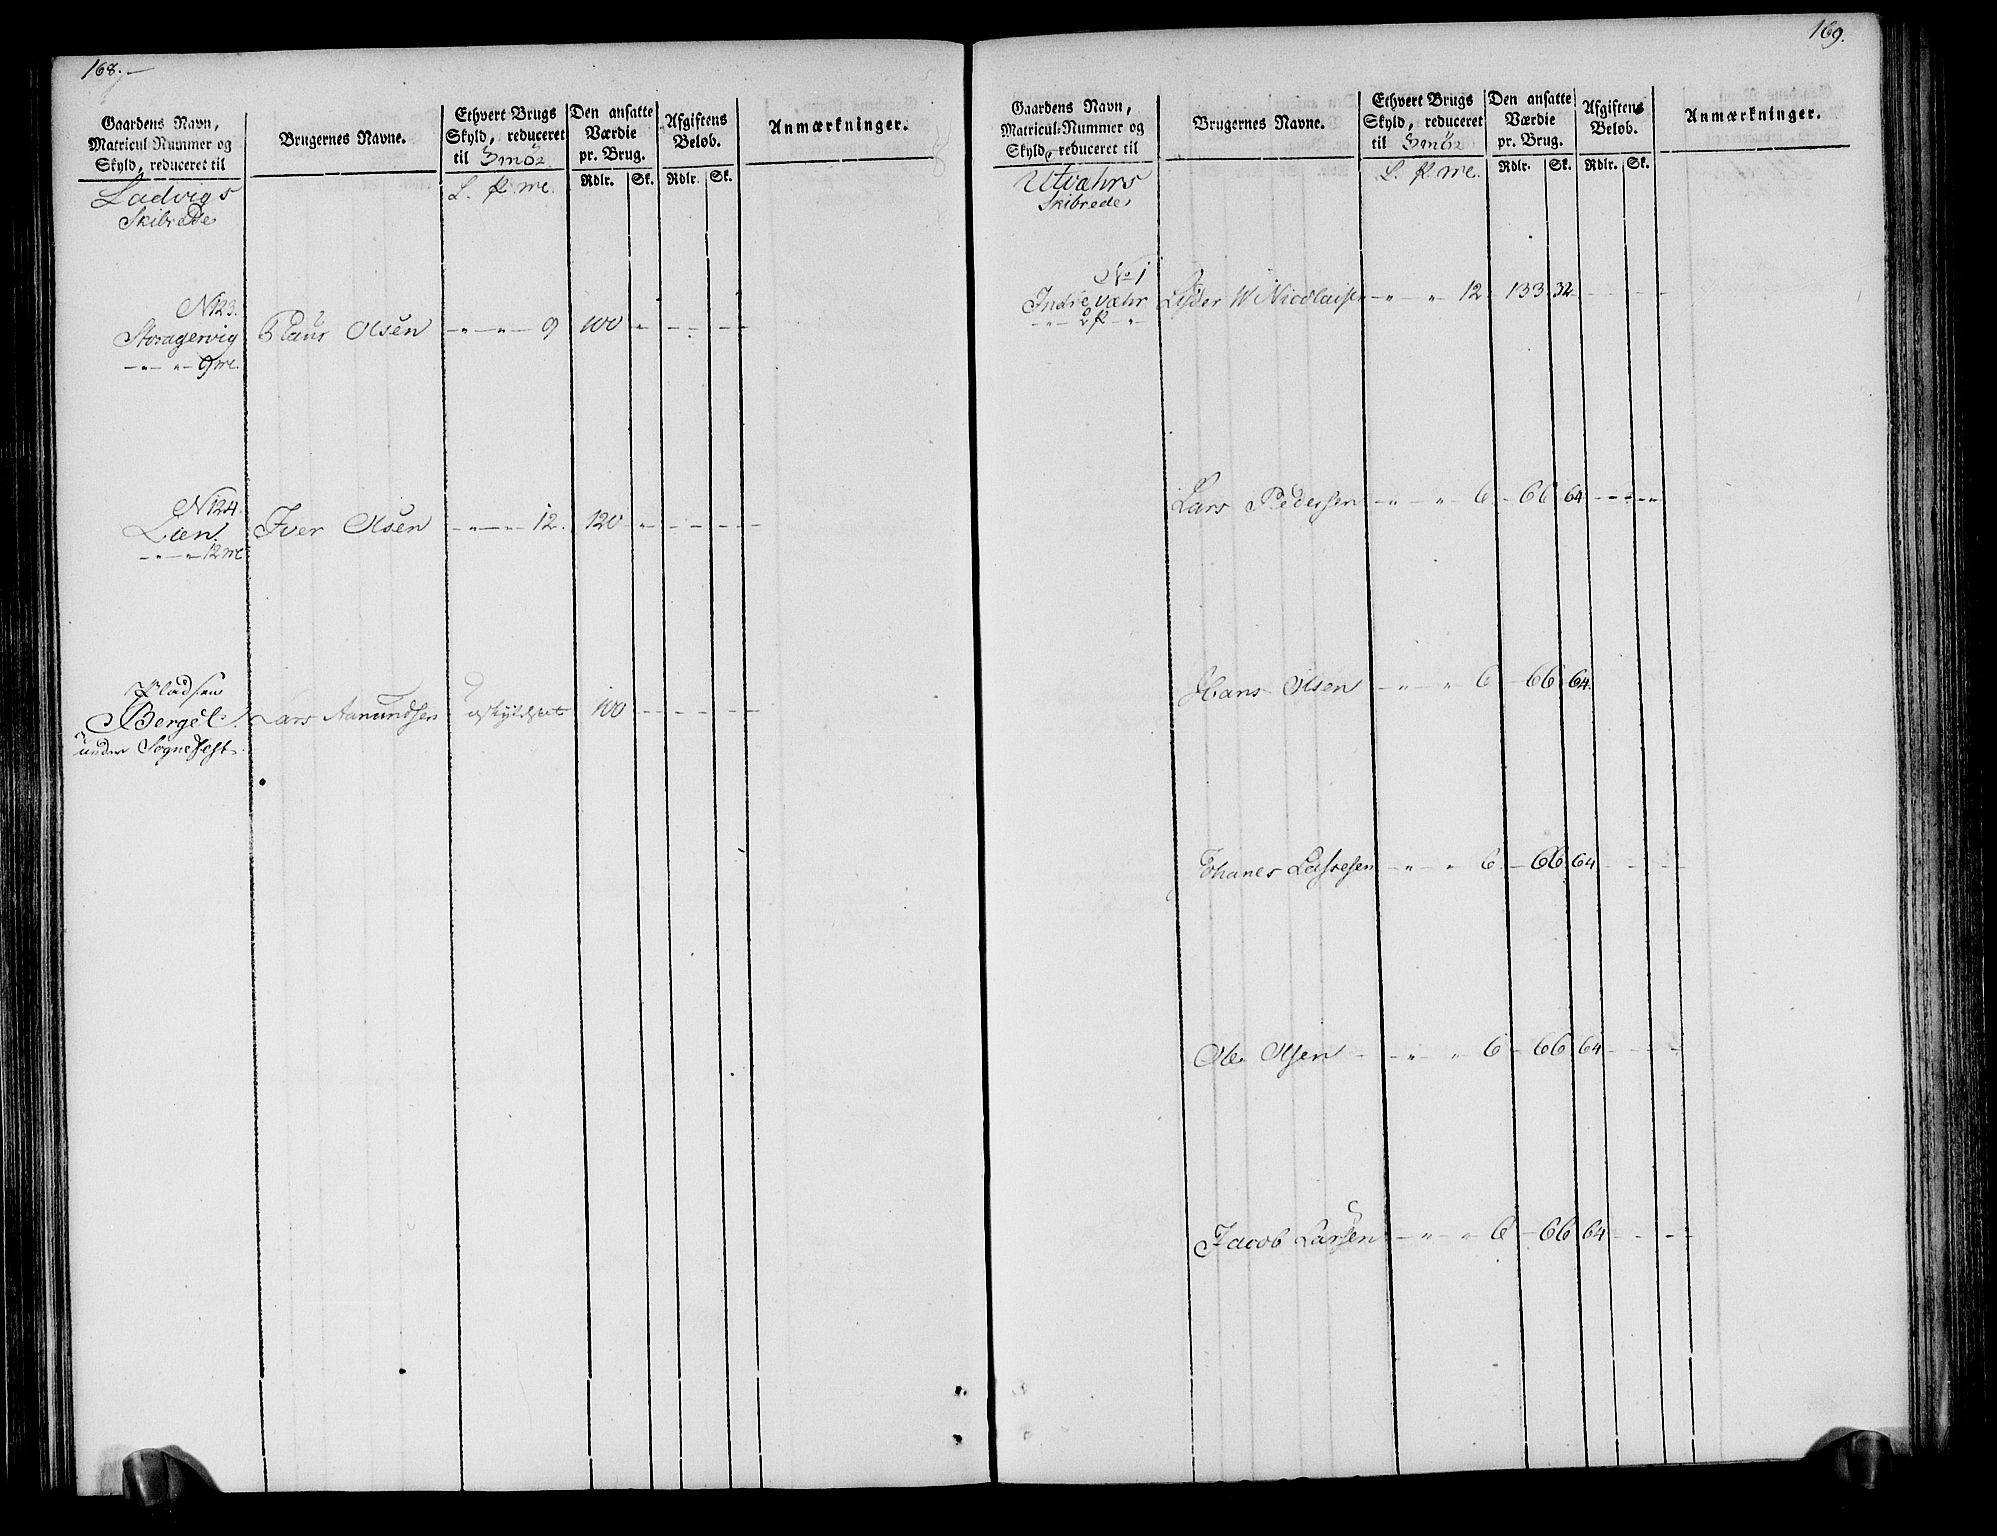 168.
Gaardens Navn,
Matricul-Nummer og
Skyld, reduceret til
Brugernes Navne.
Ethvert Brugs
Skyld, reduceret
til Smör
Den ansatte
Værdie
pr. Brug.
Afgiftens
Beløb.
Anmærkninger.
Rdlr. Sk. Rdlr. Sk.
Ladvigs
Skibrede
N 123.
Claus Olsen 9 100
9 m
N 124.
Lien Iver Olsen 12. 120
12 m
Pladsen
Bergel Lars Aamundsen uskyldsat 100
under Sognefest
169.
Gaardens Navn,
Matricul-Nummer og
Skyld, reduceret til
Brugernes Navne.
Ethvert Brugs
Skyld, reduceret
til Smör
Den ansatte
Værdie
pr. Brug.
Afgiftens
Beløb.
Anmærkninger.
Rdlr. Sk. Rdlr. Sk.
Utvæhrs
Skibrede
No 1
Indrevæhr W Nicolaisen 12 133 32
Lars Pedersen 6 66 64
Hans Olsen 6 66 64
Johanes Lassesen 6 66 64
Ole Olsen 6 66 64
Jacob Larsen 6 66 64